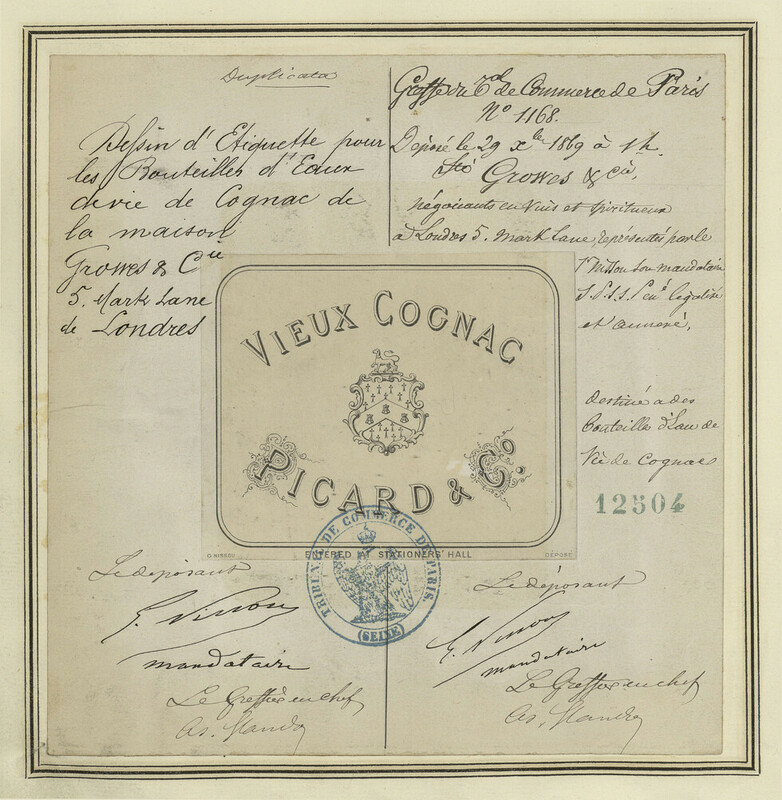 Duplicata
Dessin d'Etiquette pour
les Bouteilles d'Eaux
de vie de Cognac de
la maison
Growes & Cie
5. Mark Lane
de Londres
Greffe du Tal de Commerce de Paris
No 1168.
Déposé le 29 xbre 1869 à 1h.
Growes & Cie,
négociants en Vins et spiritueux
à Londres 5. Mark Lane, représentés par le
Sr Nisson son mandataire
et annexé,
destiné a des
bouteilles d'Eau de
Vie de Cognac
12504
VIEUX COGNAC
PICARD & Co.
G NISSOU
ENTERED AT STATIONERS' HALL
DÉPOSÉ
TRIBUNAL DE COMMERCE DE PARIS.
(SEINE)
Le déposant
G. Nisson
mandataire
Le Greffier en chef
Le déposant
G. Nisson
mandataire
Le Greffier en chef